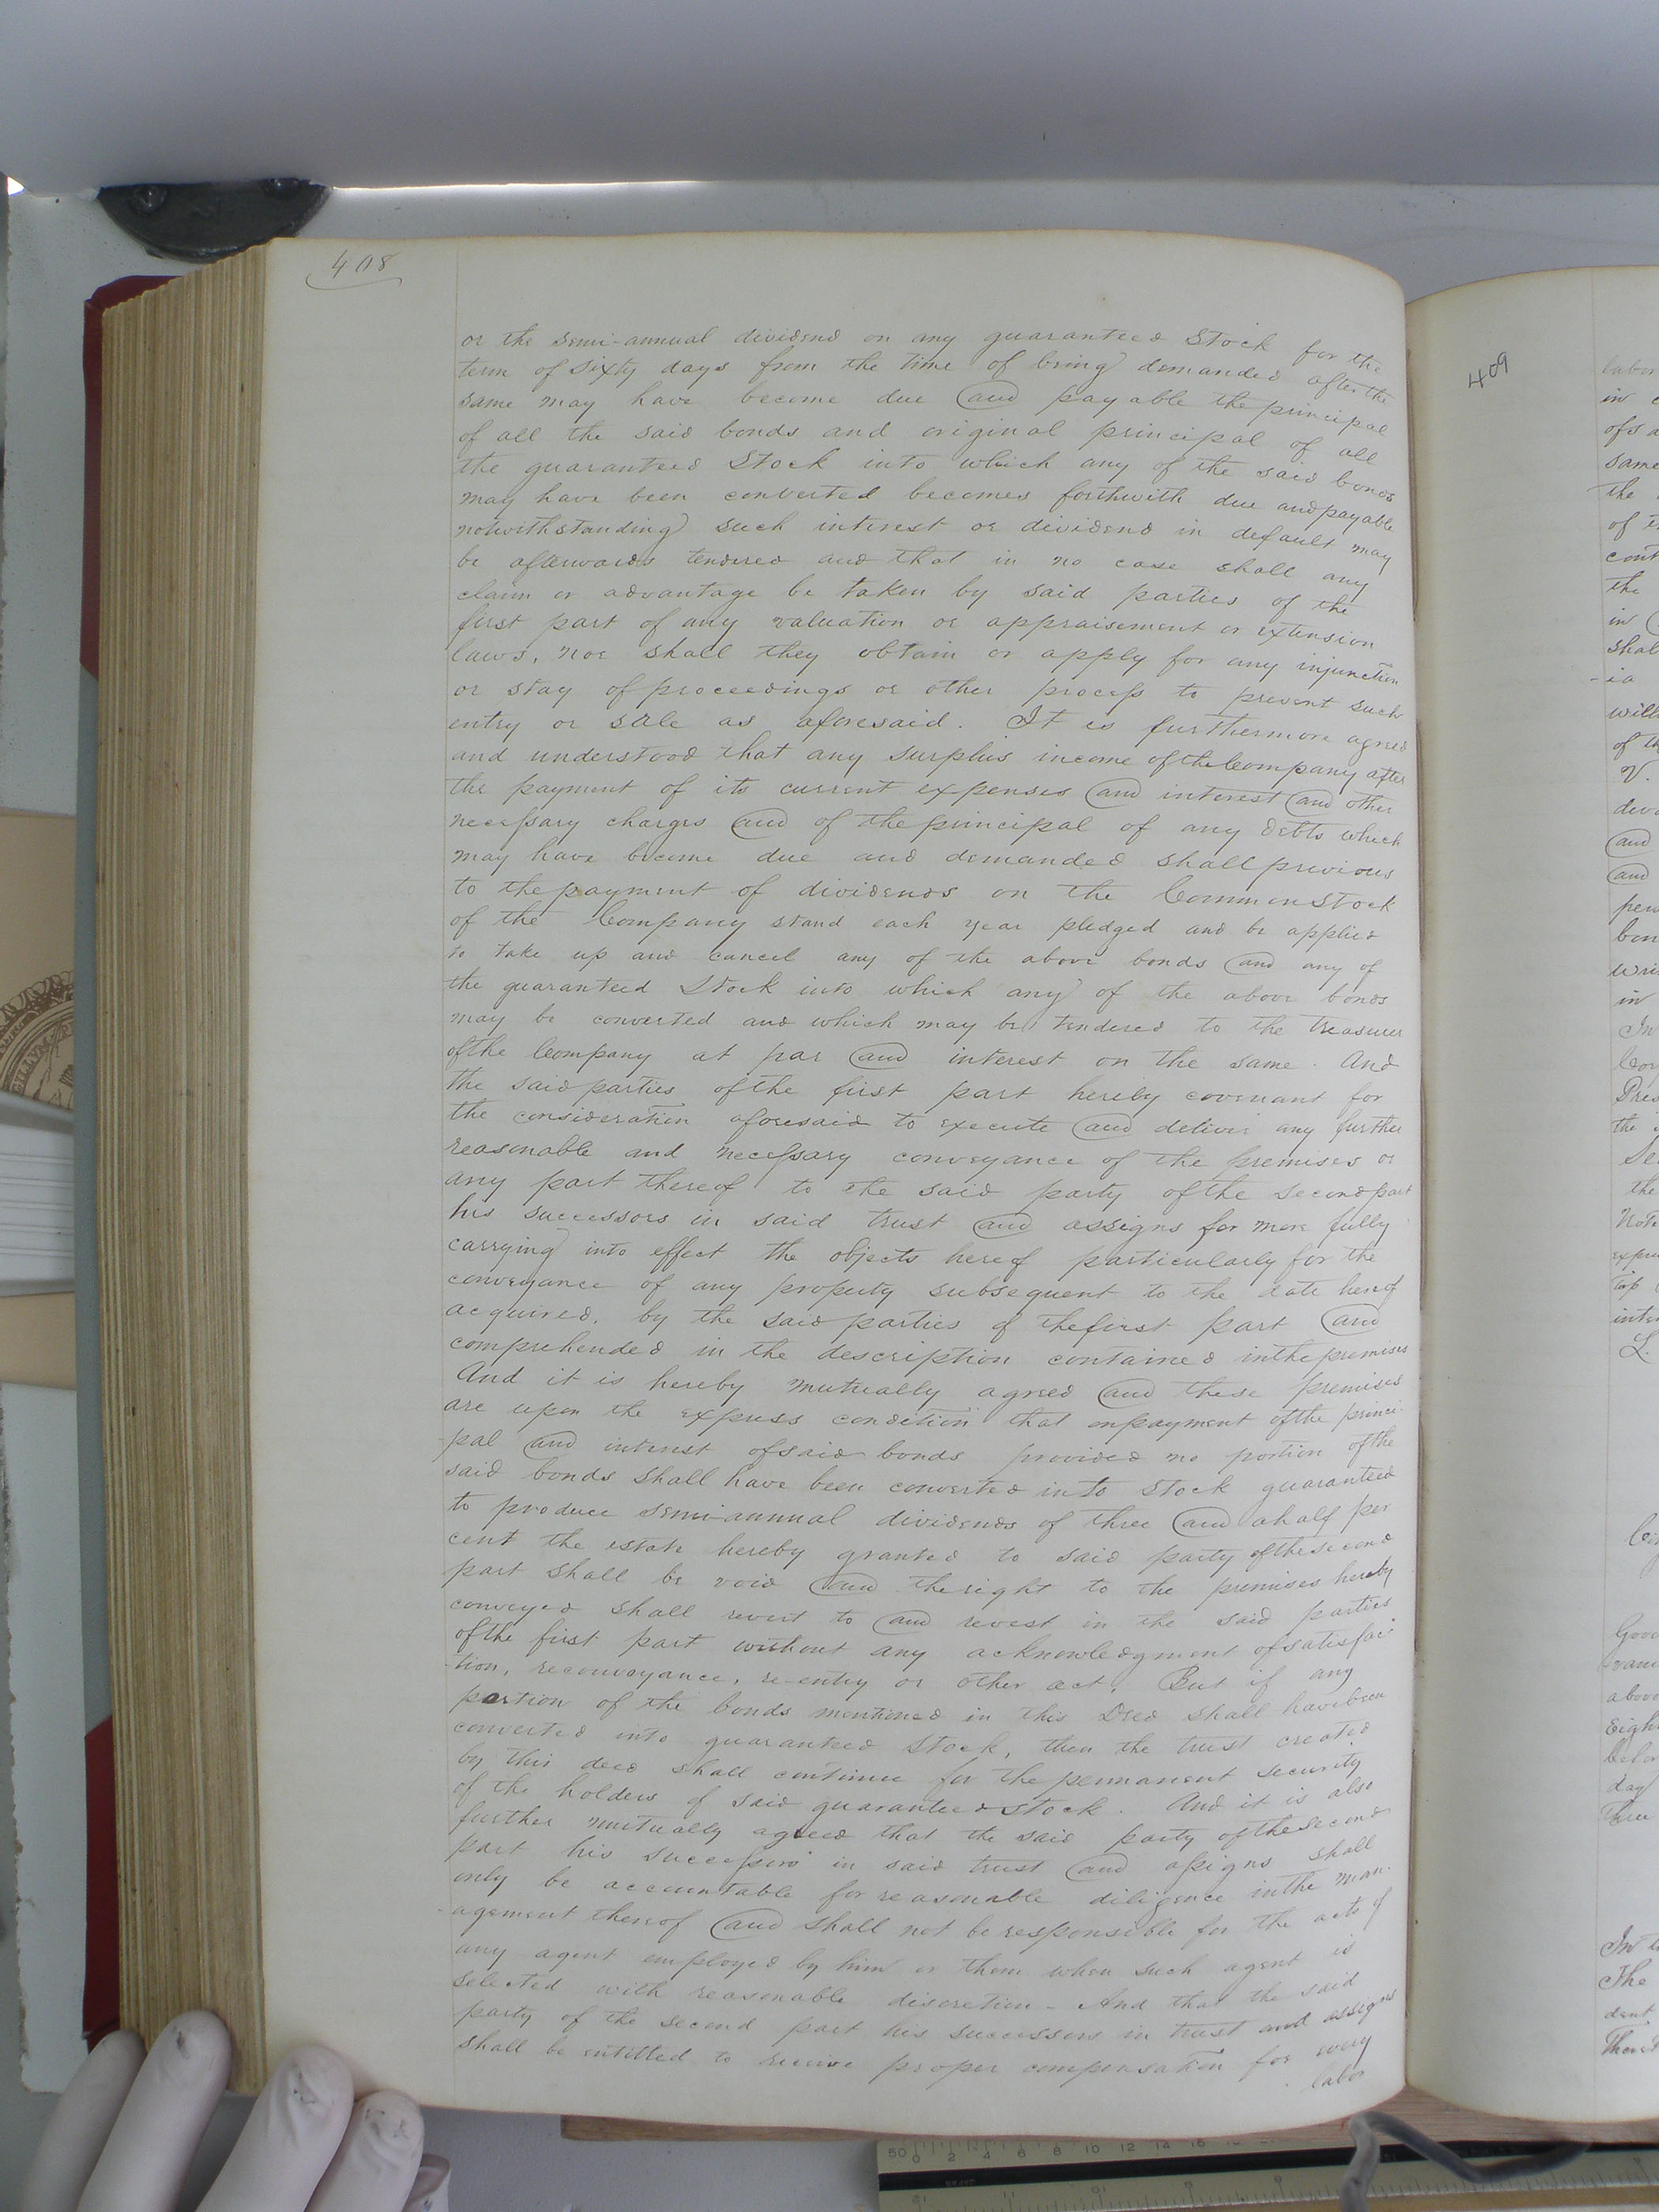 408
or the semi-annual dividend on any guaranteed Stock for the
term of sixty days from the time of being demanded after the
same may have become due and payable the principal
of all the said bonds and original principal of all
the guaranteed Stock into which any of the said bonds
may have been converted becomes forthwith due and payable
notwithstanding such interest or dividend in default may
be afterwards tendered and that in no case shall any
claim or advantage be taken by said parties of the
first part of any valuation or appraisement or extension
laws, nor shall they obtain or apply for any injunction
or stay of proceedings or other process to prevent such
entry or sale as aforesaid. It is furthermore agreed
and understood that any surplus income of the Company after
the payment of its current expenses and interest and other
necessary charges and of the principal of any debts which
may have become due and demanded shall previous
to the payment of dividends on the Common Stock
of the Company stand each year pledged and be applied
to take up and cancel any of the above bonds and any of
the guaranteed Stock into which any of the above bonds
may be converted and which may be tendered to the treasurer
of the Company at par and interest on the same. And
the said parties of the first part hereby covenant for
the consideration aforesaid to execute and deliver any further
reasonable and necessary conveyance of the premises or
any part thereof to the said party of the second part
his successors in said trust and assigns for more fully
carrying into effect the objects hereof particularly for the
conveyance of any property subsequent to the date hereof
acquired, by the said parties of the first part and
comprehended in the description contained in the premises
And it is hereby mutually agreed and these premises
are upon the express condition that on payment of the princi-
-pal and interest of said bonds provided no portion of the
said bonds shall have been converted into stock guaranteed
to produce semi-annual dividends of three and a half per
cent the estate hereby granted to said party of the second
part shall be void and the right to the premises hereby
conveyed shall revert to and revest in the said parties
of the first part without any acknowledgment of satisfac-
-tion, reconveyance, re-entry or other act. But if any
portion of the bonds mentioned in this Deed shall have been
converted into guaranteed Stock, then the trust created
by this deed shall continue for the permanent security
of the holders of said guaranteed stock. And it is also
further mutually agreed that the said party of the second
part his successors in said trust and assigns shall
only be accountable for reasonable diligence in the man-
-agement thereof and shall not be responsible for the acts of
any agent employed by him or them when such agent is
selected with reasonable discretion - And that the said
party of the second part his successors in trust and assigns
shall be entitled to receive proper compensation for every
labor
409
labor
in
same
the
the
in
shal
will
V.
and
and
in
In
the
the
in
L.
day
Three
In
The